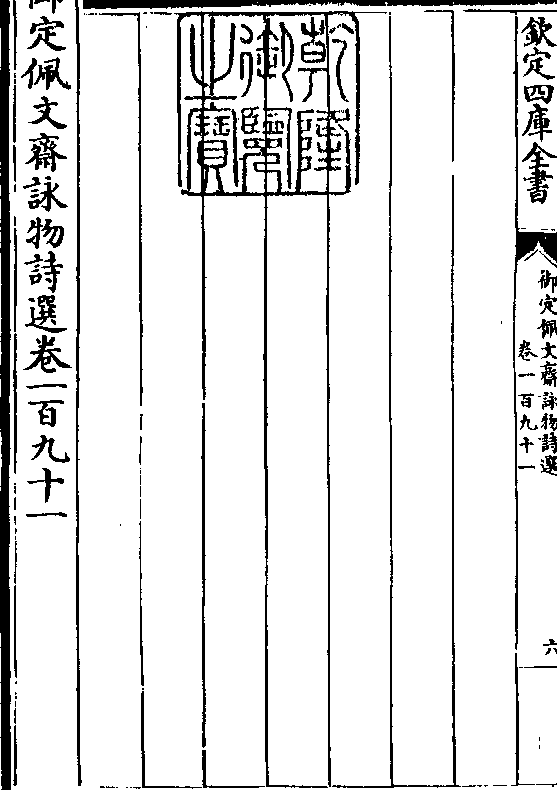 欽定四庫全書
御定佩文齋詠物詩選
卷一百九十一
六
乾隆御覽之寶
御定佩文齋詠物詩選卷一百九十一